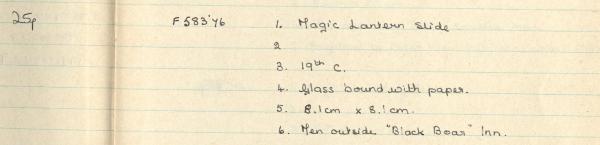 25p F583'76 1. Magic Lantern Slide
2
3. 19th C.
4. Glass bound with paper.
5. 8.1cm x 8.1cm.
6. Men outside "Black Boar" Inn.